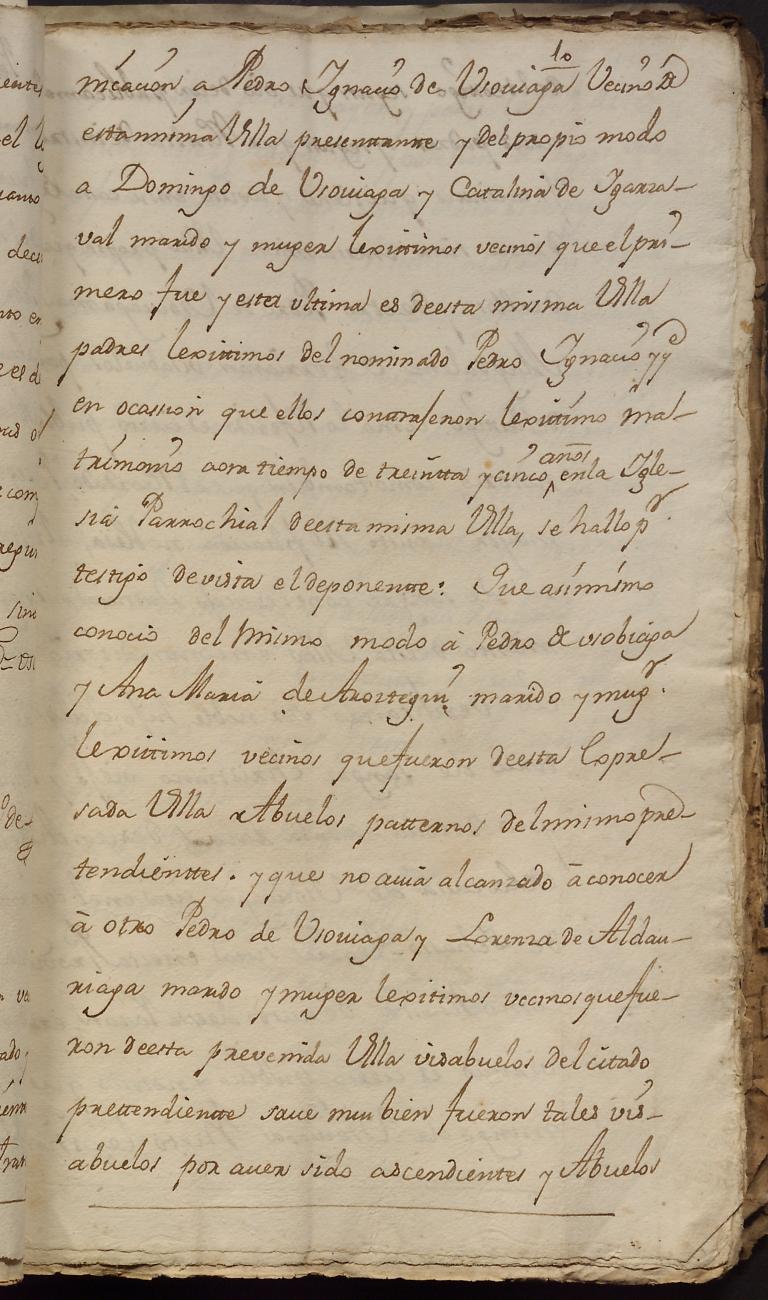 10
nicacion a Pedro Ygnacio de Usoviaga Vecino de
esta misma Villa presenttantte y del propio modo
a Domingo de Usoviaga y Catalina de Ygarza-
val marido y muger lexittimos vecinos que el pri-
mero fue y esta ultima es de esta misma Villa
padres lexittimos del nominado Pedro Ygnacio, y q
en ocassion que ellos contrajeron lexittimo ma-
trimonio aora tiempo de treintta y cinco años en la Ygle-
sia Parrochial de esta misma Villa, se hallo pr
testigo de vista el deponentte: Que asimismo
conocio del mismo modo à Pedro de Usobiaga
y Ana Maria de Arostegui marido y mugr.
lexittimos vecinos que fueron de esta Espre-
sada Villa Abuelos patternos del mismo pre-
tendienttes. y que no avia alcanzado à conocer
à otro Pedro de Usoviaga y Lorenza de Aldau-
riaga marido y muger lexitimos vecinos que fue-
ron de esta prevenida Villa visabuelos del citado
prettendientte save mui bien fueron tales vis-
abuelos por aver sido ascendientes y Abuelos